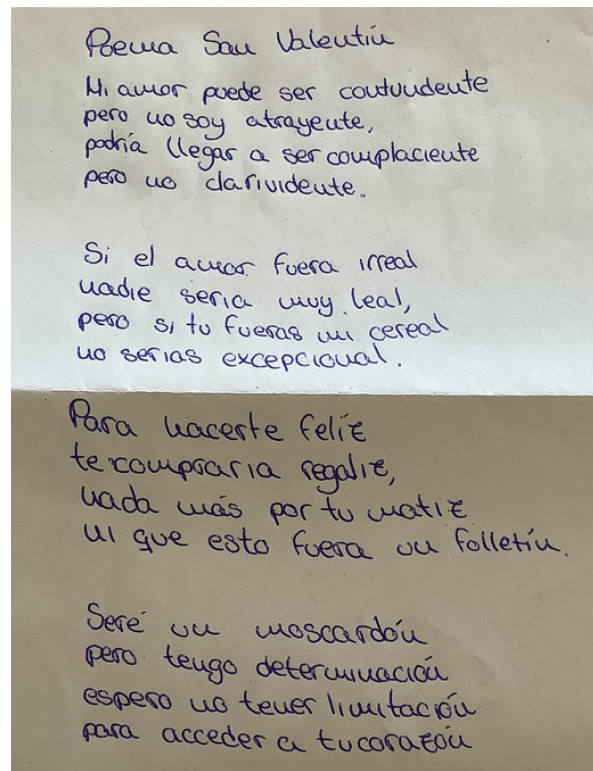 Poema San Valentín
Mi amor puede ser contundente
pero no soy atrayente,
podría llegar a ser complaciente
pero no clarividente.
Si el amor fuera irreal
nadie seria muy leal,
pero si tu fueras un cereal
no serias excepcional.
Para hacerte feliz
te compraria regaliz,
nada más por tu matiz
ni que esto fuera un folletín.
Seré un moscardón
pero tengo determinación
espero no tener limitación
para acceder a tu corazón